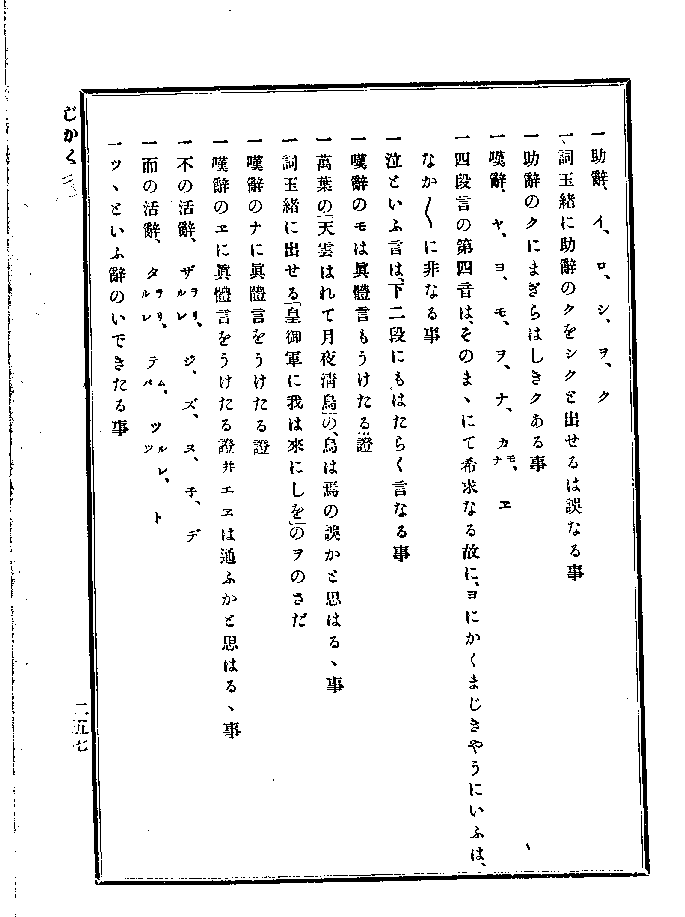 一助辭、イ、ロ、シ、ヲ、ク
一詞玉緒に助辭のクをシクと出せるは誤なる事
一助辭のクにまぎらはしきクある事
一嘆辭、ヤ、ヨ、モ、ヲ、ナ、カモ、ナ ヱ
一四段言の第四音はそのまヽにて希求なる故に、ヨにかくまじきやうにいふは、
なか〱に非なる事
一泣といふ言は、下二段にもはたらく言なる事
一嘆辭のモは眞體言もうけたる證
一萬葉の「天雲はれて月夜清烏」の、烏は焉の誤かと思はるヽ事
一詞玉緒に出せる「皇御軍に我は來にしを」のヲのさだ
一嘆辭のナに眞體言をうけたる證
一嘆辭のヱに眞體言をうけたる證幷エヱは通ふかと思はるヽ事
一不の活辭、ザラリ、ルレ ジ、ズ、ヌ、子、デ
一而の活辭、タラリ、ルレ テム、バ ツルレ、ツ ト
一ツヽといふ辭のいできたる事
じかく
二五七